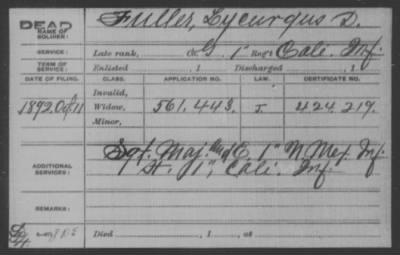 DEAD
NAME OF SOLDIER: Fuller, Lycurgus D.
SERVICE: Late rank, Co. G 1" Reg't Cali. Inf.
TERM OF SERVICE: Enlisted , 1 Discharged , 1
DATE OF FILING. CLASS. APPLICATION NO. LAW. CERTIFICATE NO.
Invalid,
1892 Oct 11 Widow, 561.443. J. 424.219.
Minor,
ADDITIONAL SERVICES: Sgt. Maj. and E. 1" N. Mex. Inf.
1", Cali. Inf.
REMARKS:
Died , 1 , at